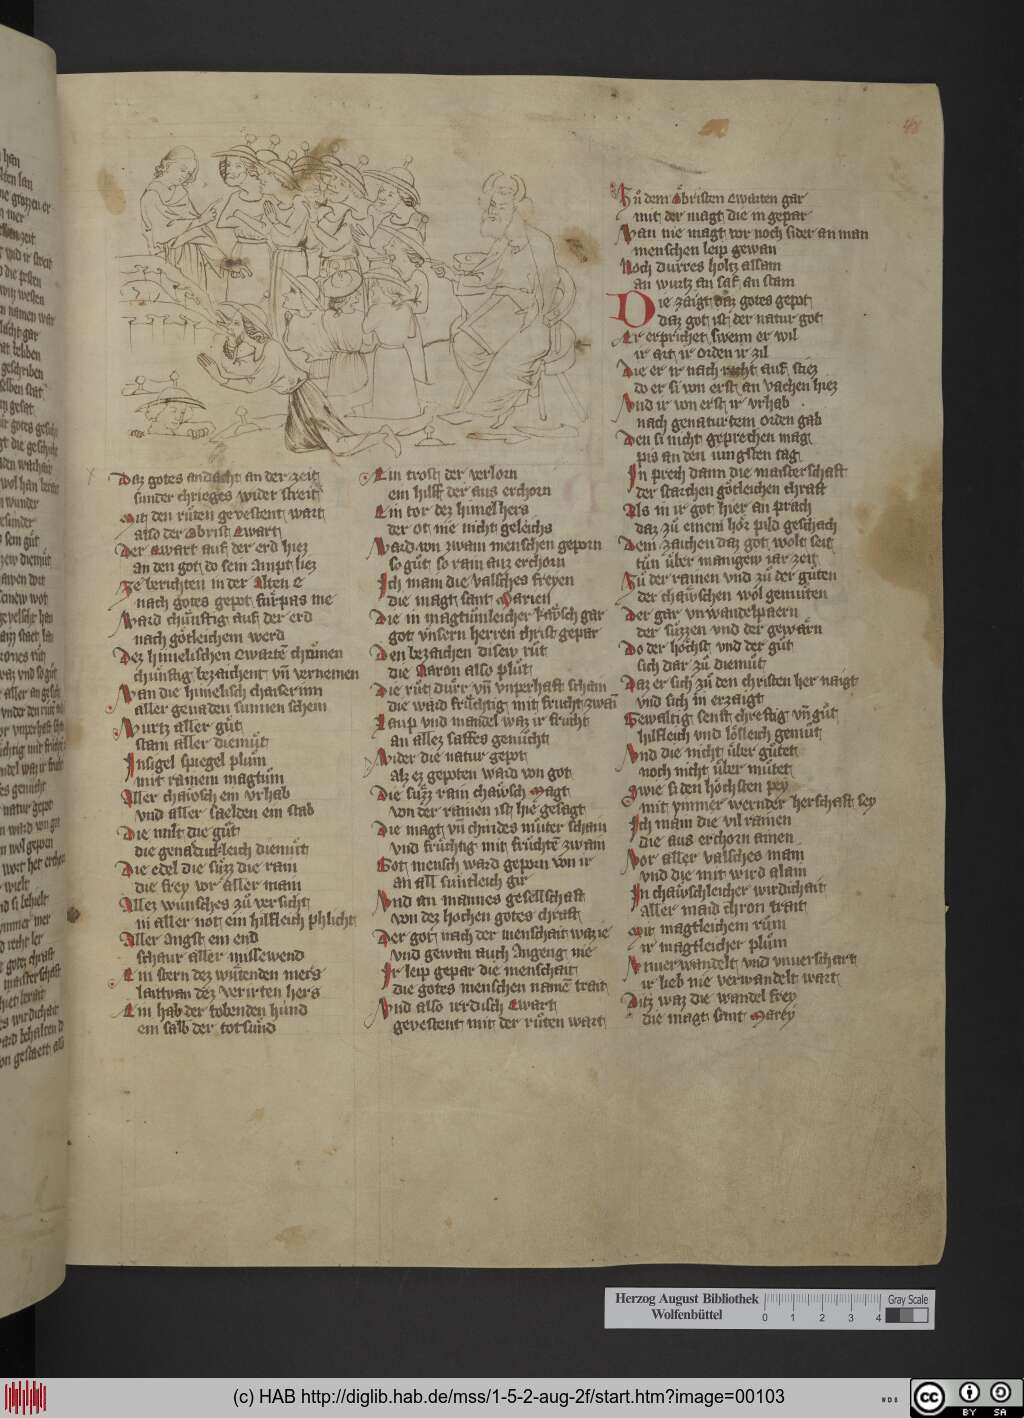 48
Daz gotes andacht an der zeit
sunder chrieges wider streit
Mit den růten gevestent wart
also der Obrist Ewart
Der Ewart auf der erd hiez
an den got do sein Ampt liez
Ze berichten in der Alten E
nach gotes gepot fürpas me
Ward chünftig auf der erd
nach götleichem werd
Dez himelischen Ewartē chümen
chünftig bezaichent vn̄ vernemen
Man die himelisch chaiserinn
aller genaden sunnen schein
Wurtz aller güt
stam aller diemüt
Insigel spiegel plům
mit rainem magtům
Aller chäwsch ein vrhab
vnd aller saelden ein stab
Die milt die güt
die genadickleich diemüt
Die edel die süzz die rain
die frey vor aller main
Allez wunsches zů versicht
in aller not ein hilfleich phlicht
Aller Angst ein end
schaur aller missewend
Ein stern dez wütenden mers
laitvan dez verirten hers
Ein hab der tobenden hund
ein salb der totsund
Ein trost der verlorn
ein hilff der aus erchorn
Ein tor dez himel hers
der ot nie nicht geleichs
Ward von zwain menschen geporn
so güt so rain auz erchorn
Ich main die valsches freyen
die magt sant Marien
Die in magtümleicher kawsch gar
got vnsern herren christ gepar
Den bezaichen disew rüt
die Aaron also plüt
Die rüt dürr vn̄ vnperhaft schain
die ward früchtig mit frucht zwai
Laup vnd mandel waz ir frücht
an allez saffes genücht
Wider die natur gepot
alz ez gepoten ward von got
Die süzz rain chawsch Magt
von der rainen ist hie gesagt
Die magt vn̄ chindes müter schain
vnd früchtig mit früchtē zwain
Got mensch ward geporn von ir
an all süntleich gir
Vnd an mannes gesellschaft
von dez hochen gotes chraft
Der got nach der menschait waz ie
vnd gewan auch Angeng nie
Ir leip gepar die menschait
die gotes menschen namē trait
Vnd also irrdisch Ewart
gevestent mit der rüten wart
Zů dem Obristen Ewarten gar
mit der magt die in gepar
Wan nie magt vor noch sider an man
menschen leip gewan
Noch dürres holtz allsam
an wurtz an saf an stam
Die zaigt daz gotes gepot
daz got ist der natur got
Er erprichet swenn er wil
ir art ir orden ir zil
Die er ir nach recht auf stiez
do er si von erst an vachen hiez
Vnd ir von erst ir vrhab
nach genaturtem orden gab
Den si nicht geprechen mag
pis an den iungsten tag
In prech dann die maisterschaft
der starchen götleichen chraft
Als in ir got hier an prach
daz zů einem hör pild geschach
Dem zaichen daz got wolt seit
tün über manigew iar zeit
Zü der rainen vnd zů der güten
der chäwschen wol gemüten
Der gar vnwandelpaern
der süzzen vnd der gewärn
Do der höchst vnd der güt
sich dar zů diemüt
Daz er sich zů den christen her naigt
vnd sich in erzaigt
Gewaltig senft chreftig vn̄ güt
hilfleich vnd lösleich gemüt
Vnd die nicht über gütet
noch nicht über mütet
Swie si den höchsten pey
mit ymmer wernder herschaft sey
Ich main die vil rainen
die aus erchorn ainen
Vor aller valsches main
vnd die mit wird alain
In chäwschleicher wirdichait
Aller maid chron trait
Mit magtleichem rům
ir magtleicher plům
Vnuerwandelt vnd vnuerschart
ir lieb nie verwandelt wart
Ditz waz die wandel frey
die magt sant Marey
Herzog August Bibliothek
Wolfenbüttel
0 1 2 3 4
Gray Scale
(c) HAB http://diglib.hab.de/mss/1-5-2-aug-2f/start.htm?image=00103
cc BY SA